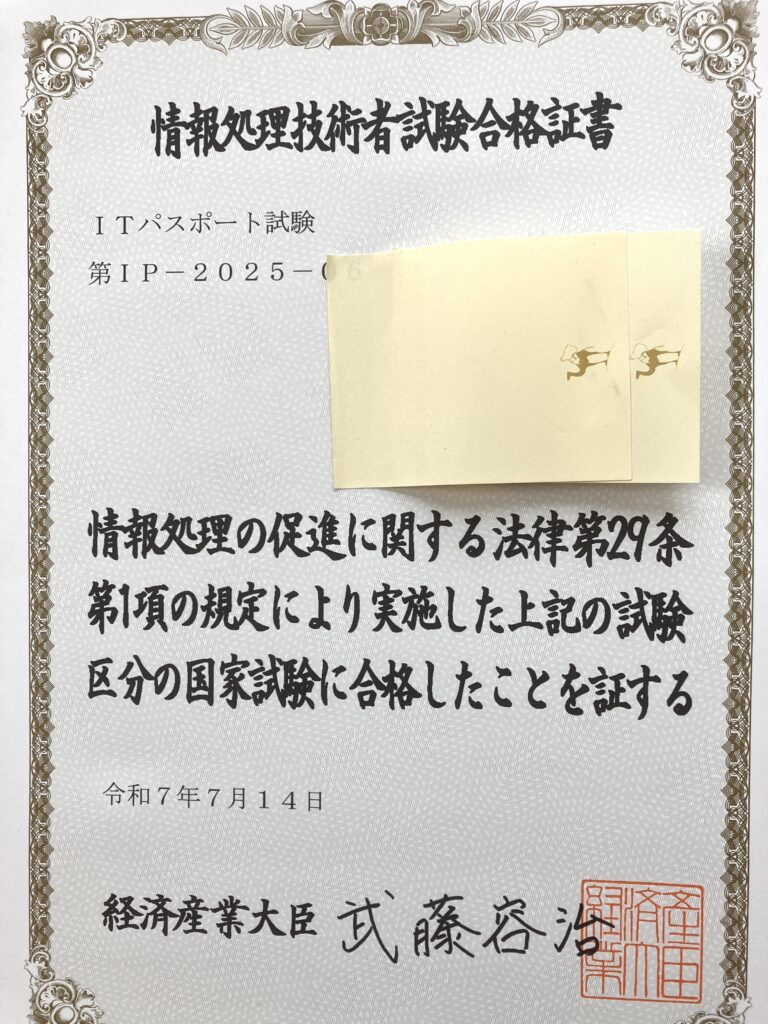 情報処理技術者試験合格証書
ITパスポート試験
第IP-2025-06
情報処理の促進に関する法律第29条
第1項の規定により実施した上記の試験
区分の国家試験に合格したことを証する
令和7年7月14日
経済産業大臣 武藤容治
経済産業大臣